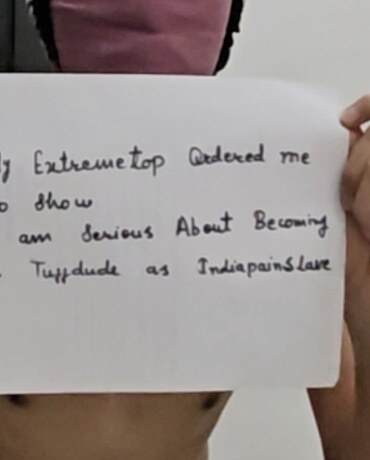 y Extremetop Ordered me
o show
am Serious About Becoming
Tuffdude as IndiapainSlave